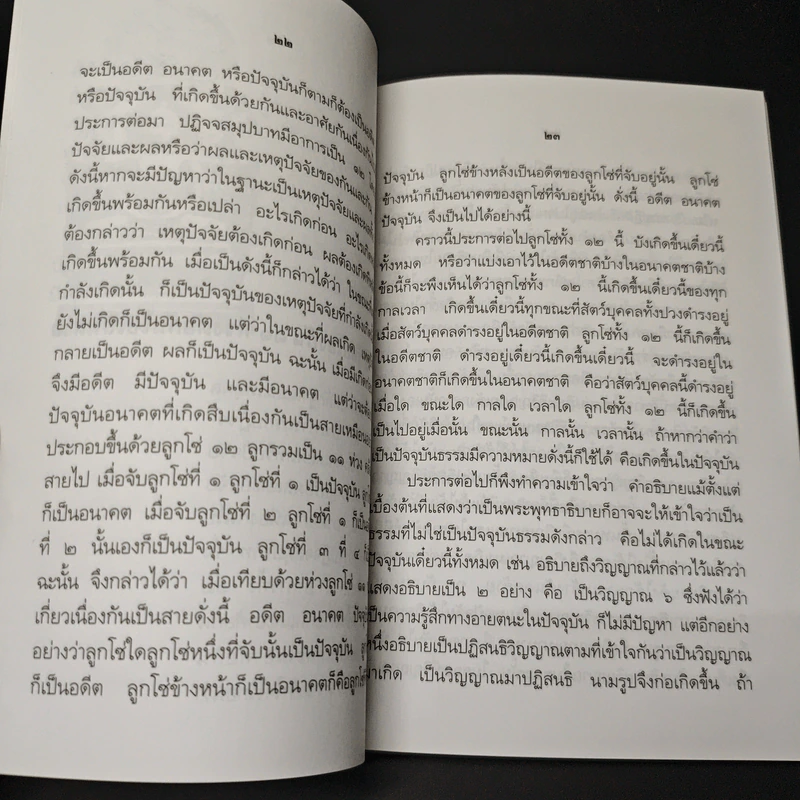 ๒๒
จะเป็นอดีต อนาคต หรือปัจจุบันก็ตามก็ต้องเป็น
หรือปัจจุบัน ที่เกิดขึ้นด้วยกันและอาศัยกันเนื่อง
ประการต่อมา ปฏิจจสมุปบาทมีอาการเป็น ๑๒
ปัจจัยและผลหรือว่าผลและเหตุปัจจัยของกันและกัน
ดังนี้หากจะมีปัญหาว่าในฐานะเป็นเหตุปัจจัยและผล
เกิดขึ้นพร้อมกันหรือเปล่า อะไรเกิดก่อน อะไรเกิด
ต้องกล่าวว่า เหตุปัจจัยต้องเกิดก่อน ผลต้องเกิด
เกิดขึ้นพร้อมกัน เมื่อเป็นดังนี้ก็กล่าวได้ว่า ในขณะ
กำลังเกิดนั้น ก็เป็นปัจจุบันของเหตุปัจจัยที่กำลัง
ยังไม่เกิดก็เป็นอนาคต แต่ว่าในขณะที่ผลเกิด
กลายเป็นอดีต ผลก็เป็นปัจจุบัน ฉะนั้น เมื่อมี
จึงมีอดีต มีปัจจุบัน และมีอนาคต แต่ว่าจะ
ปัจจุบันอนาคตที่เกิดสืบเนื่องกันเป็นสายเหมือน
ประกอบขึ้นด้วยลูกโซ่ ๑๒ ลูกรวมเป็น ๑๑ ห่วง
สายไป เมื่อจับลูกโซ่ที่ ๑ ลูกโซ่ที่ ๑ เป็นปัจจุบัน
ก็เป็นอนาคต เมื่อจับลูกโซ่ที่ ๒ ลูกโซ่ที่ ๑ ก็
ที่ ๒ นั้นเองก็เป็นปัจจุบัน ลูกโซ่ที่ ๓ ที่ ๔
ฉะนั้น จึงกล่าวได้ว่า เมื่อเทียบด้วยห่วงลูกโซ่
เกี่ยวเนื่องกันเป็นสายดั่งนี้ อดีต อนาคต ปัจจุบัน
อย่างว่าลูกโซ่ใดลูกโซ่หนึ่งที่จับนั้นเป็นปัจจุบัน
ก็เป็นอดีต ลูกโซ่ข้างหน้าก็เป็นอนาคตก็คือลูกโซ่
๒๓
ปัจจุบัน ลูกโซ่ข้างหลังเป็นอดีตของลูกโซ่ที่จับอยู่นั้น ลูกโซ่
ข้างหน้าก็เป็นอนาคตของลูกโซ่ที่จับอยู่นั้น ดั่งนี้ อดีต อนาคต
ปัจจุบัน จึงเป็นไปได้อย่างนี้
คราวนี้ประการต่อไปลูกโซ่ทั้ง ๑๒ นี้ บังเกิดขึ้นเดี๋ยวนี้
ทั้งหมด หรือว่าแบ่งเอาไว้ในอดีตชาติบ้างในอนาคตชาติบ้าง
ข้อนี้ก็จะพึงเห็นได้ว่าลูกโซ่ทั้ง ๑๒ นี้เกิดขึ้นเดี๋ยวนี้ของทุก
กาลเวลา เกิดขึ้นเดี๋ยวนี้ทุกขณะที่สัตว์บุคคลทั้งปวงดำรงอยู่
เมื่อสัตว์บุคคลดำรงอยู่ในอดีตชาติ ลูกโซ่ทั้ง ๑๒ นี้ก็เกิดขึ้น
ในอดีตชาติ ดำรงอยู่เดี๋ยวนี้เกิดขึ้นเดี๋ยวนี้ จะดำรงอยู่ใน
อนาคตชาติก็เกิดขึ้นในอนาคตชาติ คือว่าสัตว์บุคคลนี้ดำรงอยู่
เมื่อใด ขณะใด กาลใด เวลาใด ลูกโซ่ทั้ง ๑๒ นี้ก็เกิดขึ้น
เป็นไปอยู่เมื่อนั้น ขณะนั้น กาลนั้น เวลานั้น ถ้าหากว่าคำว่า
เป็นปัจจุบันธรรมมีความหมายดั่งนี้ก็ใช้ได้ คือเกิดขึ้นในปัจจุบัน
ประการต่อไปก็พึงทำความเข้าใจว่า คำอธิบายแม้ตั้งแต่
เบื้องต้นที่แสดงว่าเป็นพระพุทธาธิบายก็อาจจะให้เข้าใจว่าเป็น
ธรรมที่ไม่ใช่เป็นปัจจุบันธรรมดังกล่าว คือไม่ได้เกิดในขณะ
ปัจจุบันเดี๋ยวนี้ทั้งหมด เช่น อธิบายถึงวิญญาณที่กล่าวไว้แล้วว่า
แสดงอธิบายเป็น ๒ อย่าง คือ เป็นวิญญาณ ๖ ซึ่งฟังได้ว่า
เป็นความรู้สึกทางอายตนะในปัจจุบัน ก็ไม่มีปัญหา แต่อีกอย่าง
หนึ่งอธิบายเป็นปฏิสนธิวิญญาณตามที่เข้าใจกันว่าเป็นวิญญาณ
มาเกิด เป็นวิญญาณมาปฏิสนธิ นามรูปจึงก่อเกิดขึ้น ถ้า